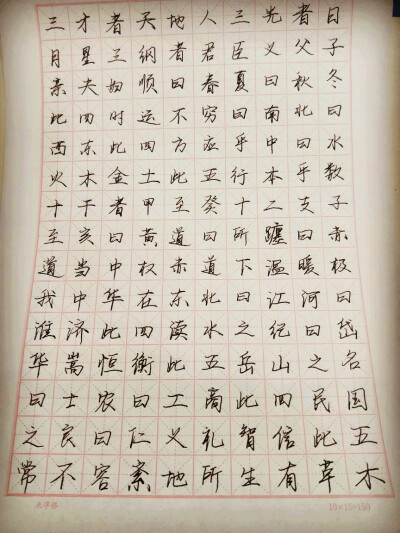 三才者天地人三光者日
月星三纲者君臣义父子
亲夫妇顺曰春夏曰秋冬
此四时运不穷曰南北曰
西东此四方应乎中曰水
火木金土此五行本乎数
十干者甲至癸十二支子
至亥曰黄道曰所躔曰赤
道当中权赤道下温暖极
我中华在东北曰江河曰
淮济此四渎水之纪曰岱
华嵩恒衡此五岳山之名
曰士农曰工商此四民国
之良曰仁义礼智信此五
常不容紊地所生有草木
米字格 10×15=150